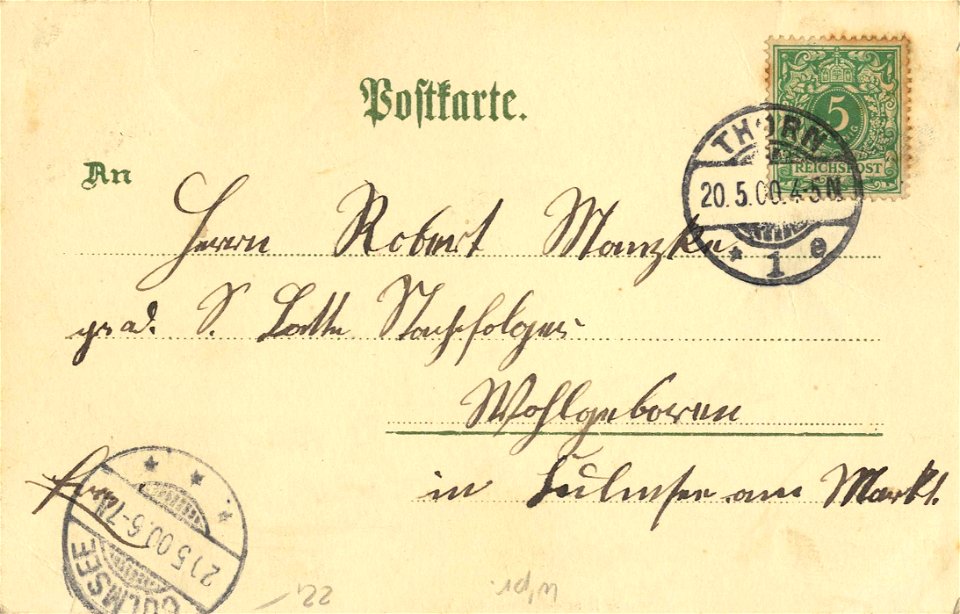 Postkarte.
5
REICHSPOST
THORN
20.5.00.4-5N
* 1 e
An
Herrn Robert Manzke
S. Latte Nachfolger
Wohlgeboren
in Culmsee am Markt.
5.00.6-7N
CULMSEE
22